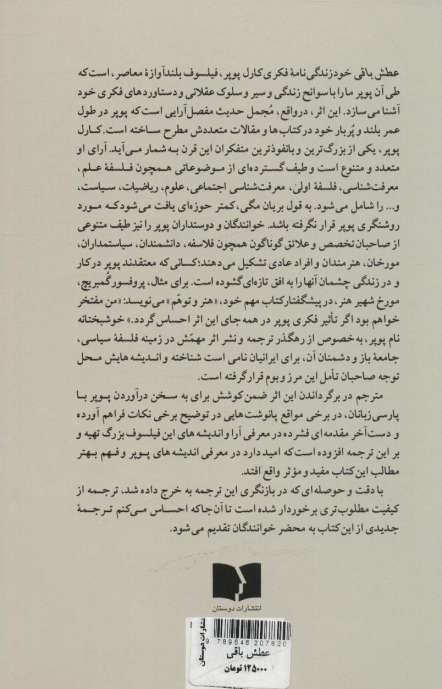 عطش باقی خودزندگی‌نامهٔ فکری کارل پوپر، فیلسوف بلندآوازهٔ معاصر، است که
طی آن پوپر ما را با سوانح زندگی و سیر و سلوک عقلانی و دستاوردهای فکری خود
آشنا می‌سازد. این اثر، درواقع، مُجمل حدیث مفصل آرایی است که پوپر در طول
عمر بلند و پُربار خود در کتاب‌ها و مقالات متعددش مطرح ساخته است. کارل
پوپر، یکی از بزرگ‌ترین و بانفوذترین متفکران این قرن به شمار می‌آید. آرای او
متعدد و متنوع است و طیف گسترده‌ای از موضوعاتی همچون فلسفهٔ علم،
معرفت‌شناسی، فلسفهٔ اولیٰ، معرفت‌شناسی اجتماعی، علوم، ریاضیات، سیاست،
و... را شامل می‌شود. به قول بریان مگی، کمتر حوزه‌ای یافت می‌شود که مورد
روشنگری پوپر قرار نگرفته باشد. خوانندگان و دوستداران پوپر را نیز طیف متنوعی
از صاحبان تخصص و علائق گوناگون همچون فلاسفه، دانشمندان، سیاستمداران،
مورخان، هنرمندان و افراد عادی تشکیل می‌دهند؛ کسانی که معتقدند پوپر در کار
و در زندگی چشمان آنها را به افق تازه‌ای گشوده است. برای مثال، پروفسور گُمبریچ،
مورخ شهیر هنر، در پیشگفتار کتاب مهم خود، «هنر و توهّم» می‌نویسد: «من مفتخر
خواهم بود اگر تأثیر فکری پوپر در همه جای این اثر احساس گردد.» خوشبختانه
نام پوپر، به‌خصوص از رهگذر ترجمه و نشر اثر مهمّش در زمینه فلسفهٔ سیاسی،
جامعهٔ باز و دشمنان آن، برای ایرانیان نامی است شناخته و اندیشه هایش محل
توجه صاحبان تأمل این مرز و بوم قرار گرفته است.
مترجم در برگرداندن این اثر ضمن کوشش برای به سخن درآوردن پوپر با
پارسی‌زبانان، در برخی مواقع پانوشت‌هایی در توضیح برخی نکات فراهم آورده
و دست‌آخر مقدمه‌ای فشرده در معرفی آرا و اندیشه های این فیلسوف بزرگ تهیه و
بر این ترجمه افزوده است که امید دارد در معرفی اندیشه های پوپر و فهم بهتر
مطالب این کتاب مفید و مؤثر واقع افتد.
با دقت و حوصله‌ای که در بازنگری این ترجمه به خرج داده شد، ترجمه از
کیفیت مطلوب‌تری برخوردار شده است تا آن‌جا که احساس می‌کنم ترجمهٔ
جدیدی از این کتاب به محضر خوانندگان تقدیم می‌شود.
انتشارات دوستان
9 789646 207820
عطش باقی
۱۲۵۰۰۰ تومان